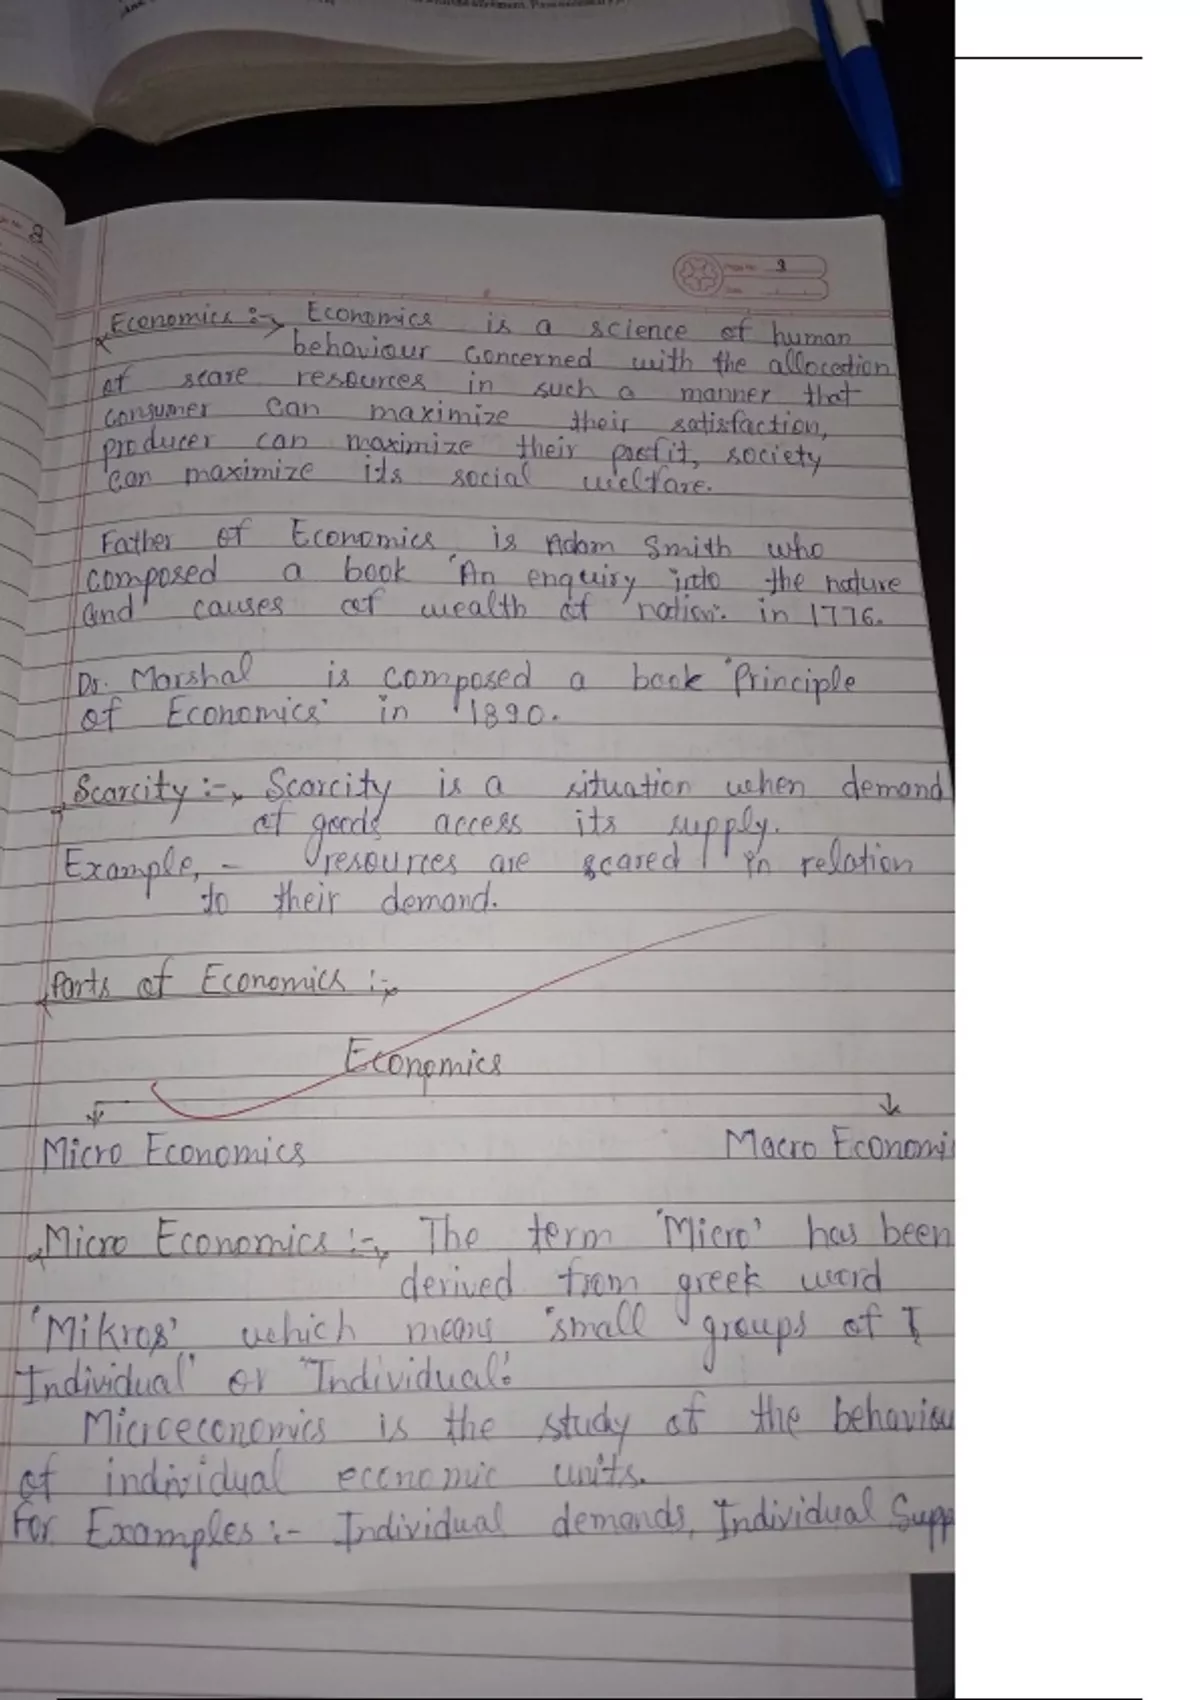 8
Page No. 3
Date
Economics :- Economics is a science of human
behaviour concerned with the allocation
of scare resources in such a manner that
consumer can maximize their satisfaction,
producer can maximize their profit, society
can maximize its social welfare.
Father of Economics is Adam Smith who
composed a book 'An enquiry into the nature
and causes of wealth of nation' in 1776.
Dr. Marshal is composed a book 'Principle
of Economics' in 1890.
Scarcity :- Scarcity is a situation when demand
of goods access its supply.
Example, - resources are scared in relation
to their demand.
Parts of Economics :-
Economics
Micro Economics Macro Economi
Micro Economics :- The term 'Micro' has been
derived from greek word
'Mikros' which means 'small groups of I
Individual' or "Individual'.
Microeconomics is the study of the behaviou
of individual economic units.
For Examples :- Individual demands, Individual Supp